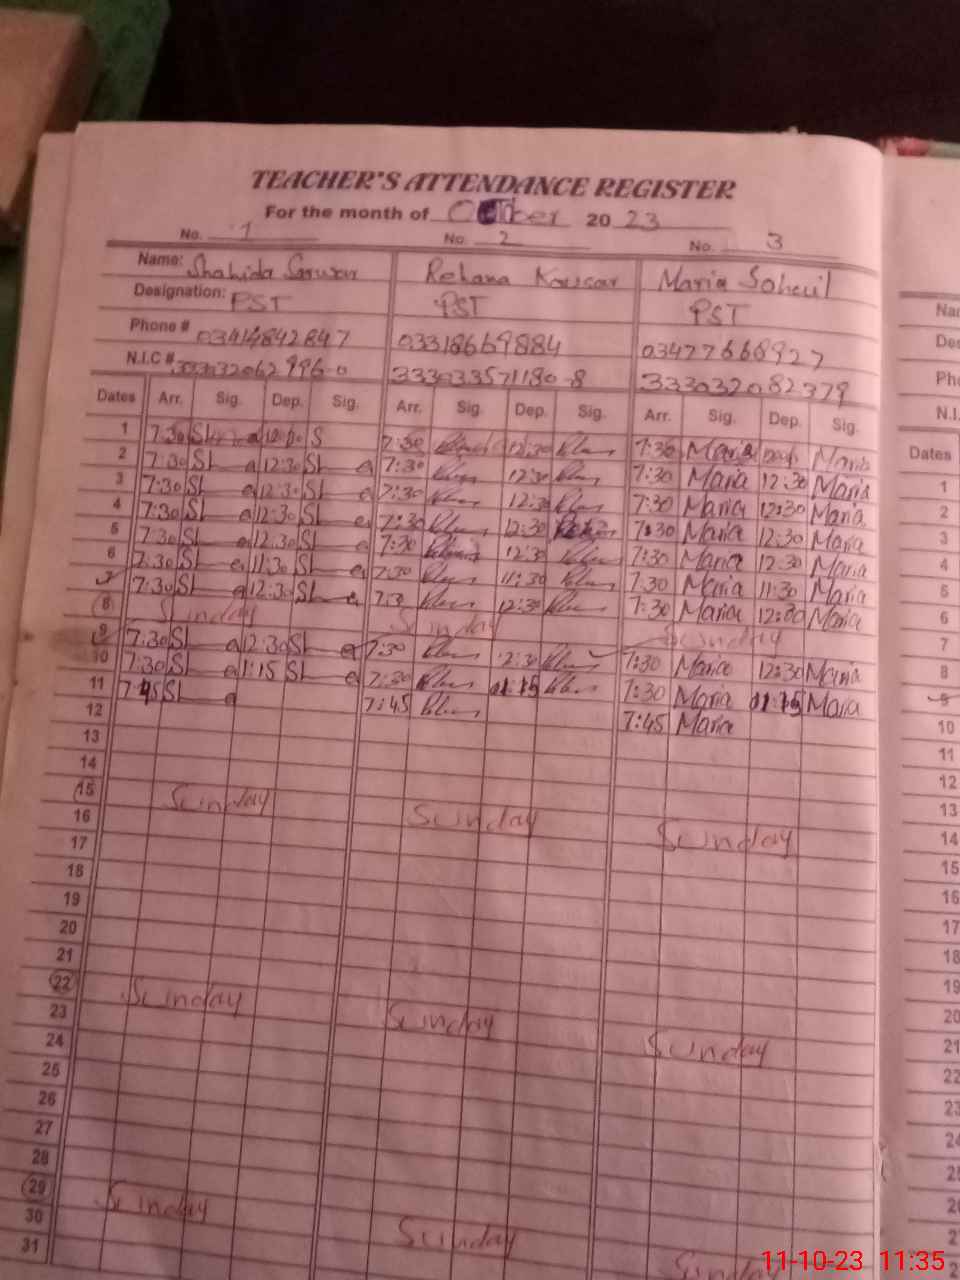 TEACHER'S ATTENDANCE REGISTER
For the month of October 20 23
No. 1 No. 2 No. 3
Name: Shahida Sarwar Rehana Kousar Maria Soheil
Designation: PST PST PST
Phone # 03414842847 03318669884 03477668927
N.I.C # 333033571180-8 333032082379
Dates Arr. Sig. Dep. Sig. Arr. Sig. Dep. Sig. Arr. Sig. Dep. Sig.
1 7:30 S 7:30 12:30 7:30 Maria Maria
2 7:30 12:30 7:30 12:30 7:30 Maria 12:30 Maria
3 7:30 12:30 7:30 12:30 7:30 Maria 12:30 Maria
4 7:30 12:30 7:30 12:30 7:30 Maria 12:30 Maria
5 7:30 12:30 7:30 12:30 7:30 Maria 12:30 Maria
6 7:30 11:30 7:30 11:30 7:30 Maria 11:30 Maria
7 7:30 12:30 7:3 12:30 7:30 Maria 12:30 Maria
8 Sunday Sunday Sunday
9 7:30 12:30 7:30 12:30 7:30 Maria 12:30 Maria
10 7:30 1:15 7:30 01:15 7:30 Maria 01:15 Maria
11 7:45 7:45 7:45 Maria
12
13
14
15 Sunday Sunday Sunday
16
17
18
19
20
21
22 Sunday Sunday Sunday
23
24
25
26
27
28
29 Sunday Sunday Sunday
30
31
Na
Des
Pho
N.I.
Dates
1
2
3
4
5
6
7
8
9
10
11
12
13
14
15
16
17
18
19
20
21
22
23
24
25
26
2
11-10-23 11:35